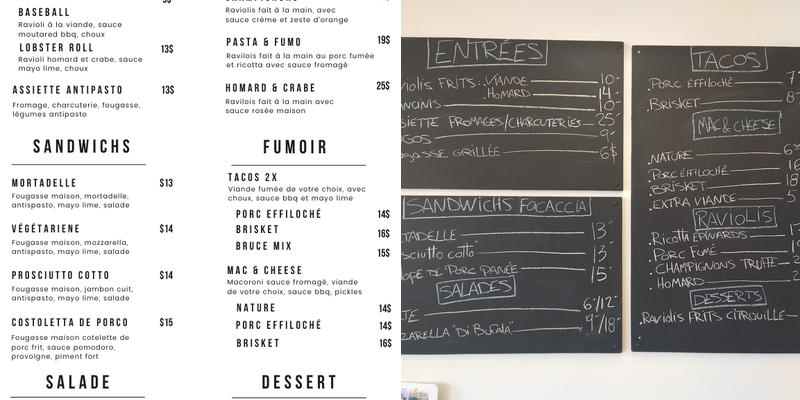 BASEBALL
Ravioli à la viande, sauce
moutarded bbq, choux
LOBSTER ROLL 13$
Ravioli homard et crabe, sauce
mayo lime, choux
ASSIETTE ANTIPASTO 13$
Fromage, charcuterie, fougasse,
légumes antipasto
SANDWICHS
MORTADELLE $13
Fougasse maison, mortadelle,
antipasto, mayo lime, salade
VÉGÉTARIENE $14
Fougasse maison, mozzarella,
antipasto, mayo lime, salade
PROSCIUTTO COTTO $14
Fougasse maison, jambon cuit,
antipasto, mayo lime, salade
COSTOLETTA DE PORCO $15
Fougasse maison cotelette de
porc frit, sauce pomodoro,
provolgne, piment fort
SALADE
Raviolis fait à la main, avec
sauce crème et zeste d'orange
PASTA & FUMO 19$
Ravilois fait à la main au porc fumée
et ricotta avec sauce fromagé
HOMARD & CRABE 25$
Ravilois fait à la main avec
sauce rosée maison
FUMOIR
TACOS 2X
Viande fumée de votre choix, avec
choux, sauce bbq et mayo lime
PORC EFFILOCHÉ 14$
BRISKET 16$
BRUCE MIX 15$
MAC & CHEESE
Macaroni sauce fromagé, viande
de votre choix, sauce bbq, pickles
NATURE 14$
PORC EFFILOCHÉ 14$
BRISKET 16$
DESSERT
ENTRÉES
VIOLIS FRITS: VIANDE 10-
.HOMARD 14-
ANCINIS 10-
SIETTE FROMAGES/CHARCUTERIES 25-
GOS 9-
OGASSE GRILLÉE 6$
SANDWICHS FOCACCIA
TADELLE 13-
SCIUTTO COTTO 13-
LOPE DE PORC PANÉE 15-
SALADES
TE 6-/12-
ZZARELLA "DI BUFALA" 9-/18-
TACOS
.PORC EFFILOCHÉ 7-
.BRISKET 8-
MAC & CHEESE
.NATURE 6
.PORC EFFILOCHÉ 16
.BRISKET 18
.EXTRA VIANDE 5
RAVIOLIS
.RICOTTA EPINARDS 17
.PORC FUMÉ 19
.CHAMPIGNONS TRUFFE 2
.HOMARD 2
DESSERTS
.RAVIOLIS FRITS CITROUILLE